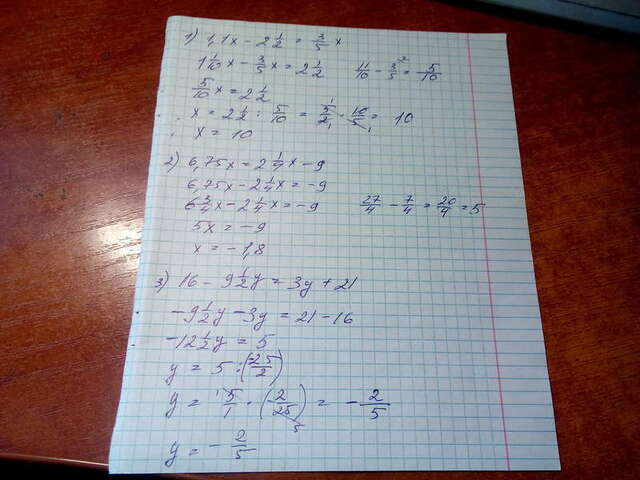 1) 1,1x - 2 1/2 = 3/5 x
1 1/10 x - 3/5 x = 2 1/2    11/10 - 3/5² = 5/10
5/10 x = 2 1/2
x = 2 1/2 : 5/10 = 5/2 · 10/5 = 10
x = 10
2) 6,75x = 2 1/4 x - 9
6,75x - 2 1/4 x = -9
6 3/4 x - 2 1/4 x = -9    27/4 - 7/4 = 20/4 = 5
5x = -9
x = -1,8
3) 16 - 9 1/2 y = 3y + 21
-9 1/2 y - 3y = 21 - 16
-12 1/2 y = 5
y = 5 : (-25/2)
y = 5/1 · (-2/25) = - 2/5
y = - 2/5